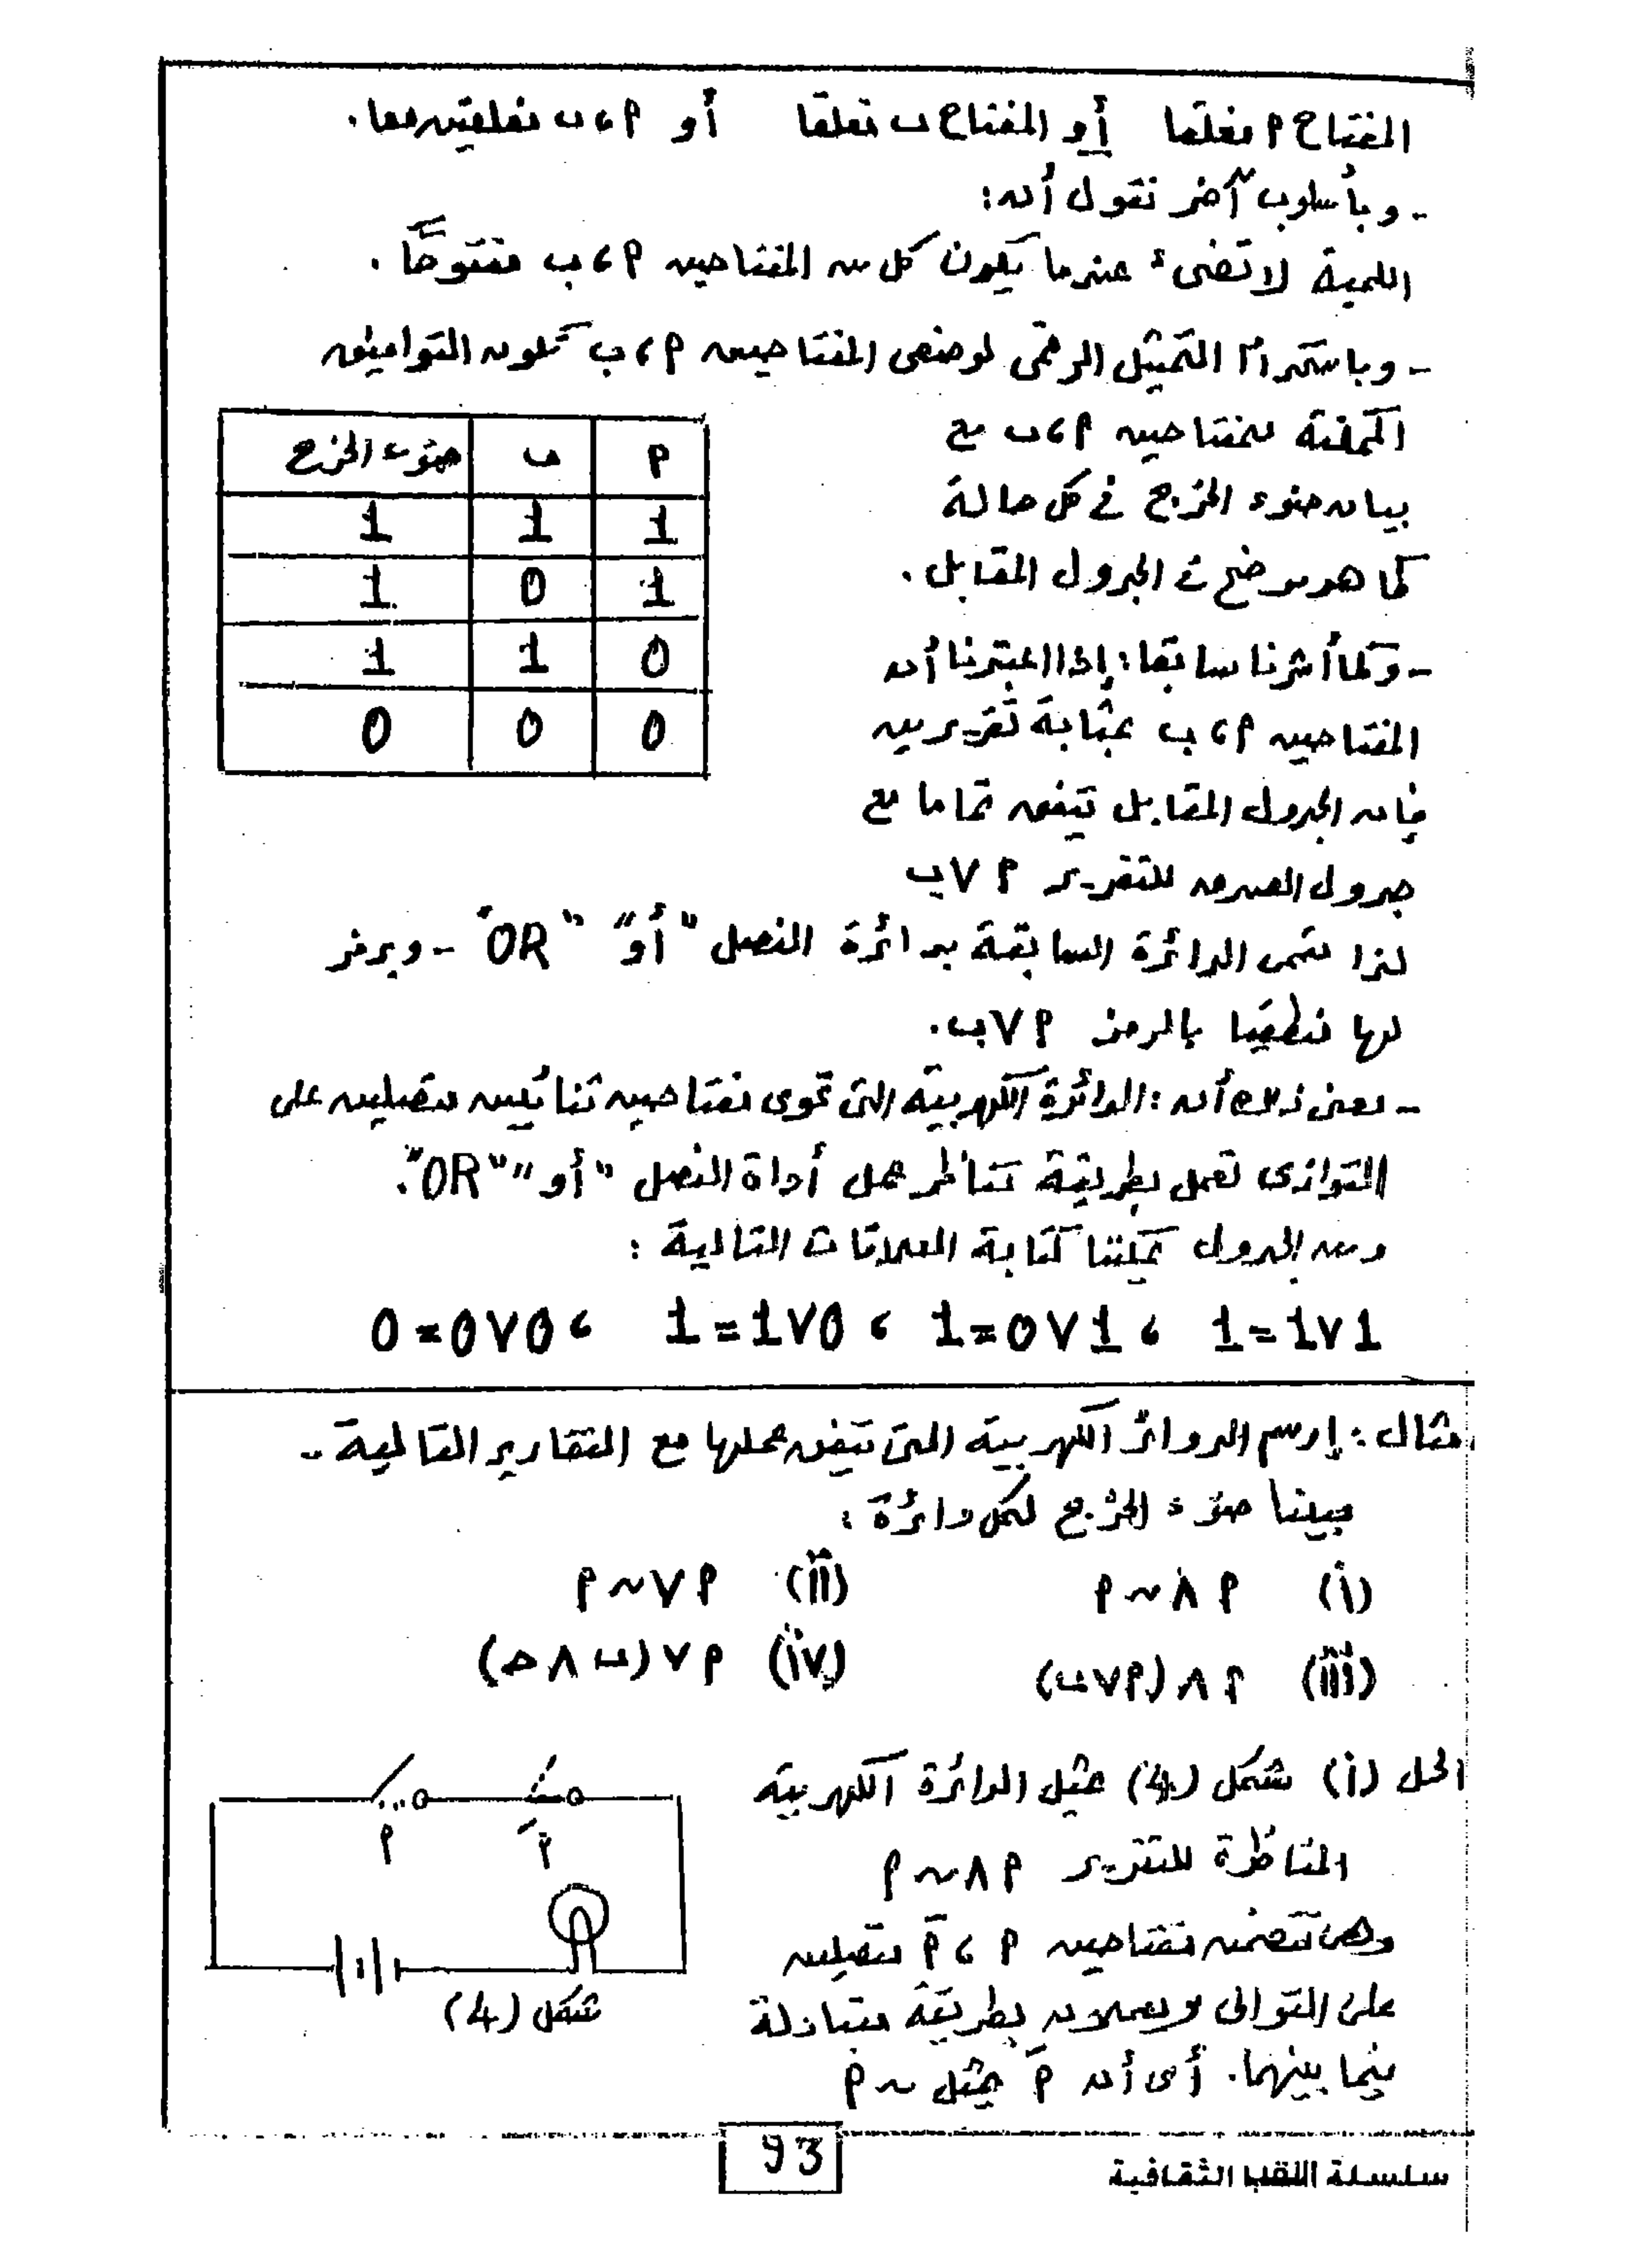 المفتاح P مغلقا أو المفتاح ب مغلقا أو P ، ب مغلقين معا .
- وبأسلوب آخر نقول أن :
اللمبة لا تضىء عندما يكون كل من المفتاحين P ، ب مفتوحًا .
- وباستخدام التمثيل الرقمى لوضعى المفتاحين P ، ب تكون التوافيق
الممكنة للمفتاحين P ، ب مع
بيان ضوء الخرج فى كل حالة
كما هو موضح فى الجدول المقابل .
P ب ضوء الخرج
1 1 1
1 0 1
0 1 1
0 0 0
- وكما أشرنا سابقا : إذا اعتبرنا أن
المفتاحين P ، ب بمثابة تقريرين
فإن الجدول المقابل يتفق تماما مع
جدول الصدق للتقرير P ∨ ب
لذا تسمى الدائرة السابقة بدائرة الفصل "أو" "OR" - ويرمز
لها منطقيا بالرمز P ∨ ب .
- يعنى ذلك أن : الدائرة الكهربية التى تحوى مفتاحين ثنائيين متصلين على
التوازى تعمل بطريقة تناظر عمل أداة الفصل "أو" "OR" .
ومن الجدول يمكننا كتابة العلاقات التالية :
1 ∨ 1 = 1 ، 1 ∨ 0 = 1 ، 0 ∨ 1 = 1 ، 0 ∨ 0 = 0
مثال : إرسم الدوائر الكهربية التى يتفق عملها مع التقارير التالية -
مبينا ضوء الخرج لكل دائرة :
(i) P ∧ ~ P (ii) P ∨ ~ P
(iii) P ∧ (P ∨ ب) (iv) P ∨ (ب ∧ ح)
الحل (i) شكل (4) يمثل الدائرة الكهربية
المناظرة للتقرير P ∧ ~ P
وهى تتضمن مفتاحين P ، P̄ متصلين
على التوالى ويعملان بطريقة متبادلة
فيما بينهما . أى أن P̄ يمثل ~ P
P P̄
شكل (4)
93
سلسلة النقب الثقافية